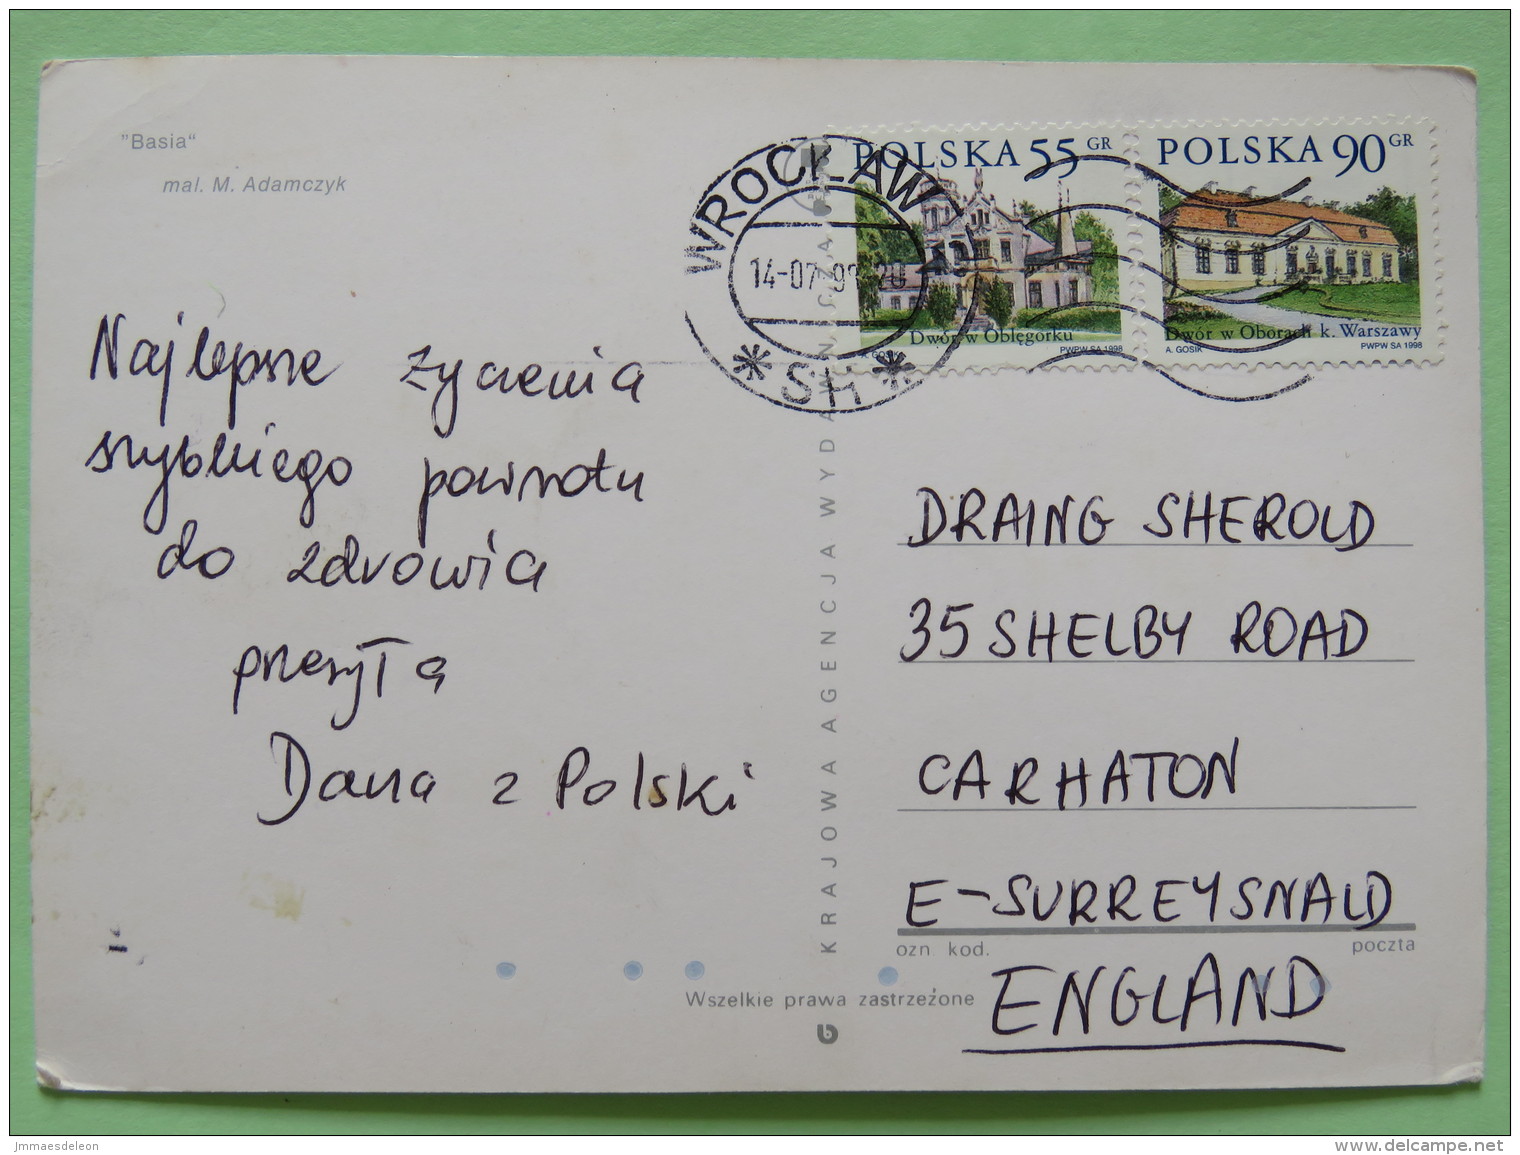 "Basia"
mal. M. Adamczyk
POLSKA 55 GR
Dwór w Oblęgorku
A. GOSIK PWPW SA 1998
POLSKA 90 GR
Dwór w Oborach k. Warszawy
A. GOSIK PWPW SA 1998
WROCŁAW
14-07-9
* SH *
Najlepsze życzenia
szybkiego powrotu
do zdrowia
przesyła
Dana z Polski
KRAJOWA AGENCJA WYDAWNICZA
DRAING SHEROLD
35 SHELBY ROAD
CARHATON
E-SURREYSNALD
ozn. kod. poczta
ENGLAND
Wszelkie prawa zastrzeżone
jmmaesdeleon
delcampe.net